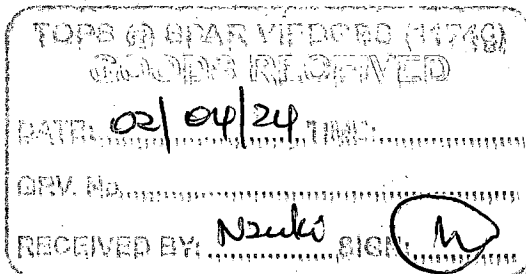 TOPS @ SPAR (11749)
GOODS RECEIVED
DATE: 02/04/24 TIME:
GRV. No.
RECEIVED BY: SIGN: